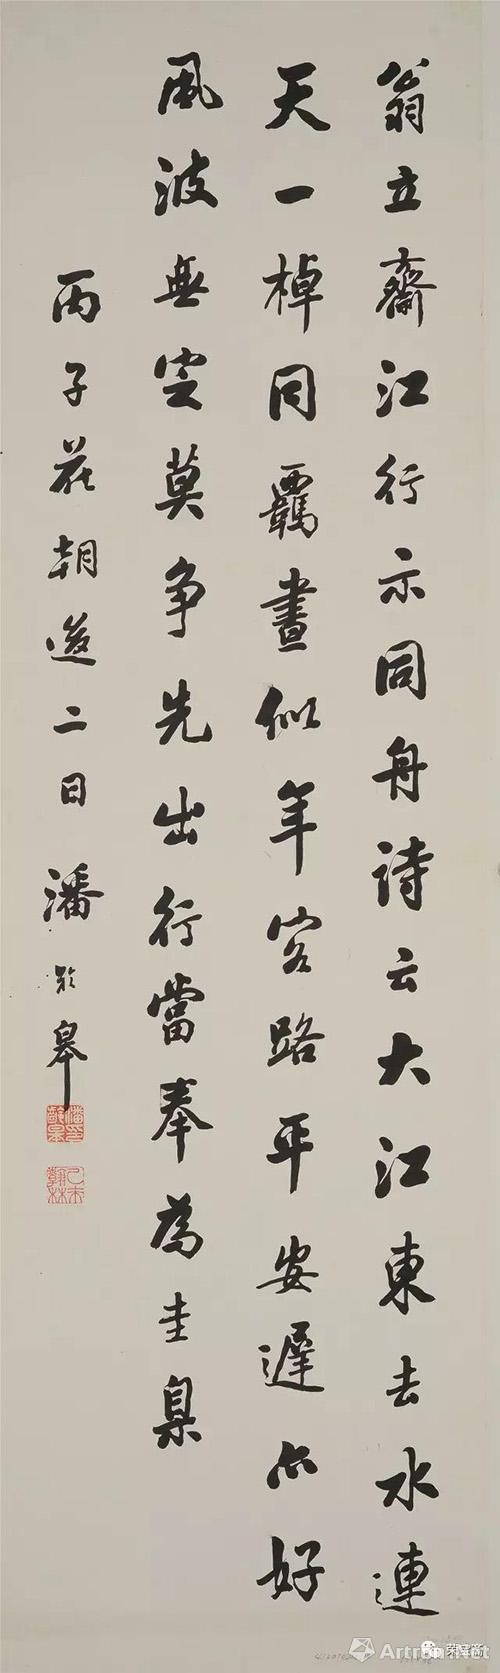 翁立齋江行示同舟詩云大江東去水連
天一棹同羈晝似年客路平安遲亦好
風波無定莫爭先出行當奉為圭臬
丙子花朝後二日潘齡皋
潘印齡皋
乙未翰林
荣宝斋
Artron.Net